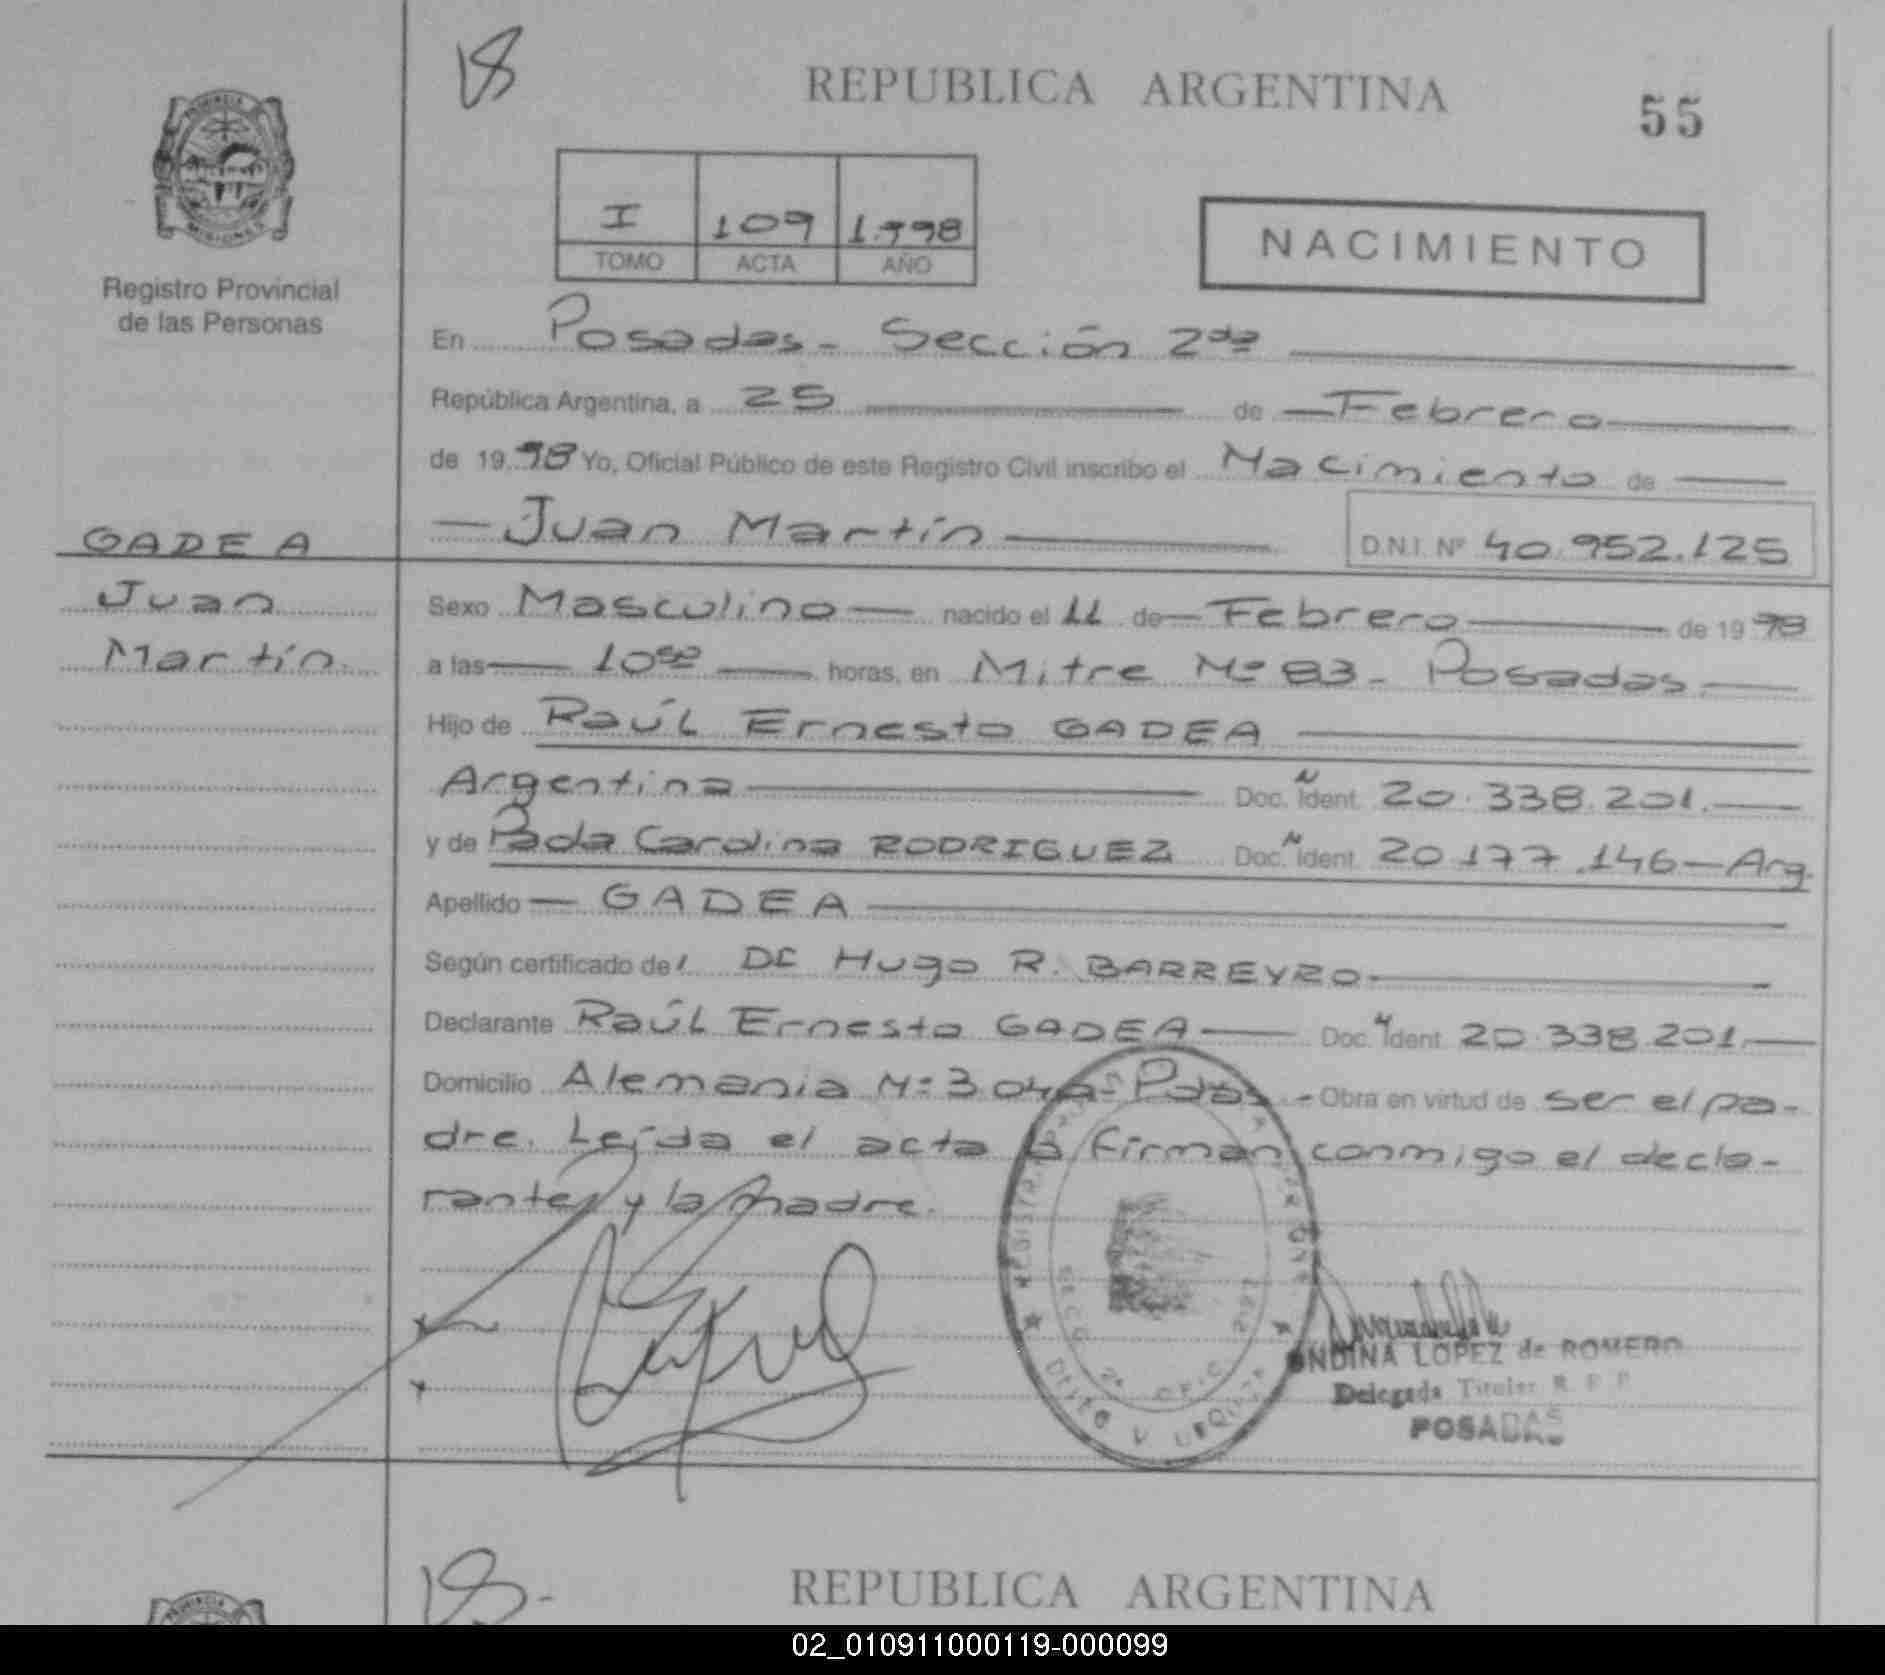 18
REPUBLICA ARGENTINA
55
PROVINCIA
MISIONES
Registro Provincial
de las Personas
I 109 1.998
TOMO ACTA AÑO
NACIMIENTO
En Posadas - Sección 2da
República Argentina, a 25 de Febrero
de 19 98 Yo, Oficial Público de este Registro Civil inscribo el Nacimiento de
GADEA
Juan
Martín.
Juan Martín D.N.I. Nº 40.952.125
Sexo Masculino nacido el 11 de Febrero de 19 98
a las 10 horas, en Mitre Nº 83 - Posadas.
Hijo de Raúl Ernesto GADEA
Argentina Doc. N Ident. 20.338.201.
y de Carolina RODRIGUEZ Doc. N Ident. 20.177.146 - Arg.
Apellido GADEA
Según certificado del Dr Hugo R. BARREYRO
Declarante Raúl Ernesto GADEA Doc. N Ident. 20.338.201.
Domicilio Alemania Nº 3.049 - Pdas - Obra en virtud de ser el pa-
dre. Leída el acta la firman conmigo el decla-
rante y la madre.
ONDINA LOPEZ de ROMERO
Delegada Titular R. P. P.
POSADAS
18.-
REPUBLICA ARGENTINA
02_010911000119-000099